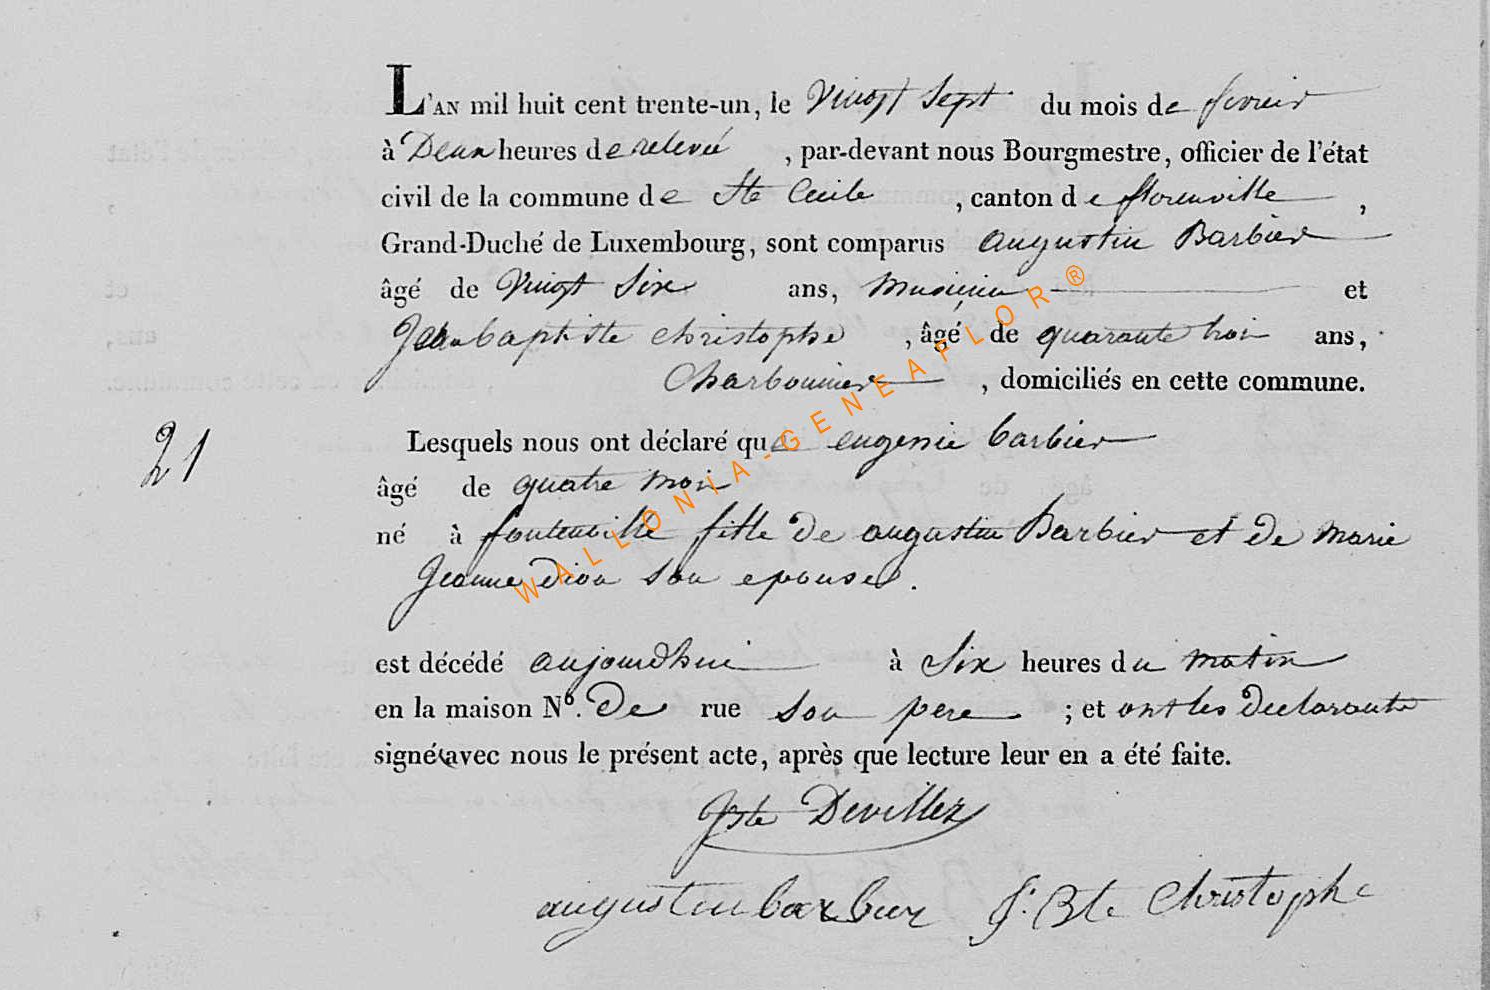 L'AN mil huit cent trente-un, le vingt sept du mois de fevrier
à Deux heures de relevée, par-devant nous Bourgmestre, officier de l'état
civil de la commune de Ste Cecile, canton de florenville,
Grand-Duché de Luxembourg, sont comparus augustin Barbier
âgé de vingt six ans, musicien et
Jean baptiste christophe, âgé de quarante trois ans,
Charbonnier, domiciliés en cette commune.
21
Lesquels nous ont déclaré que eugenie barbier
âgé de quatre mois
né à fontenoille fille de augustin Barbier et de marie
Jeanne dion son epouse.
est décédé aujourdhui à six heures du matin
en la maison Nº. De rue son pere ; et ont les declarants
signé avec nous le présent acte, après que lecture leur en a été faite.
Jbte Devillez
augustin barbier J. Bte Christophe
WALLONIA-GENEAFLOR®